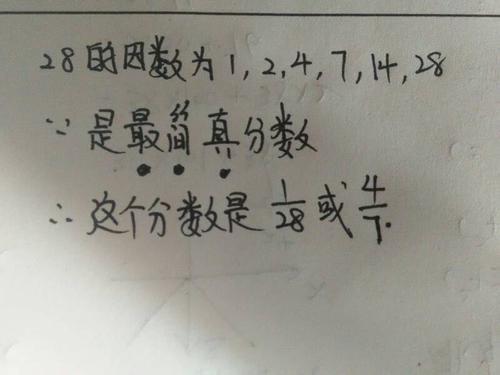 28的因数为1,2,4,7,14,28
∵是最简真分数
∴这个分数是1/28或4/7.